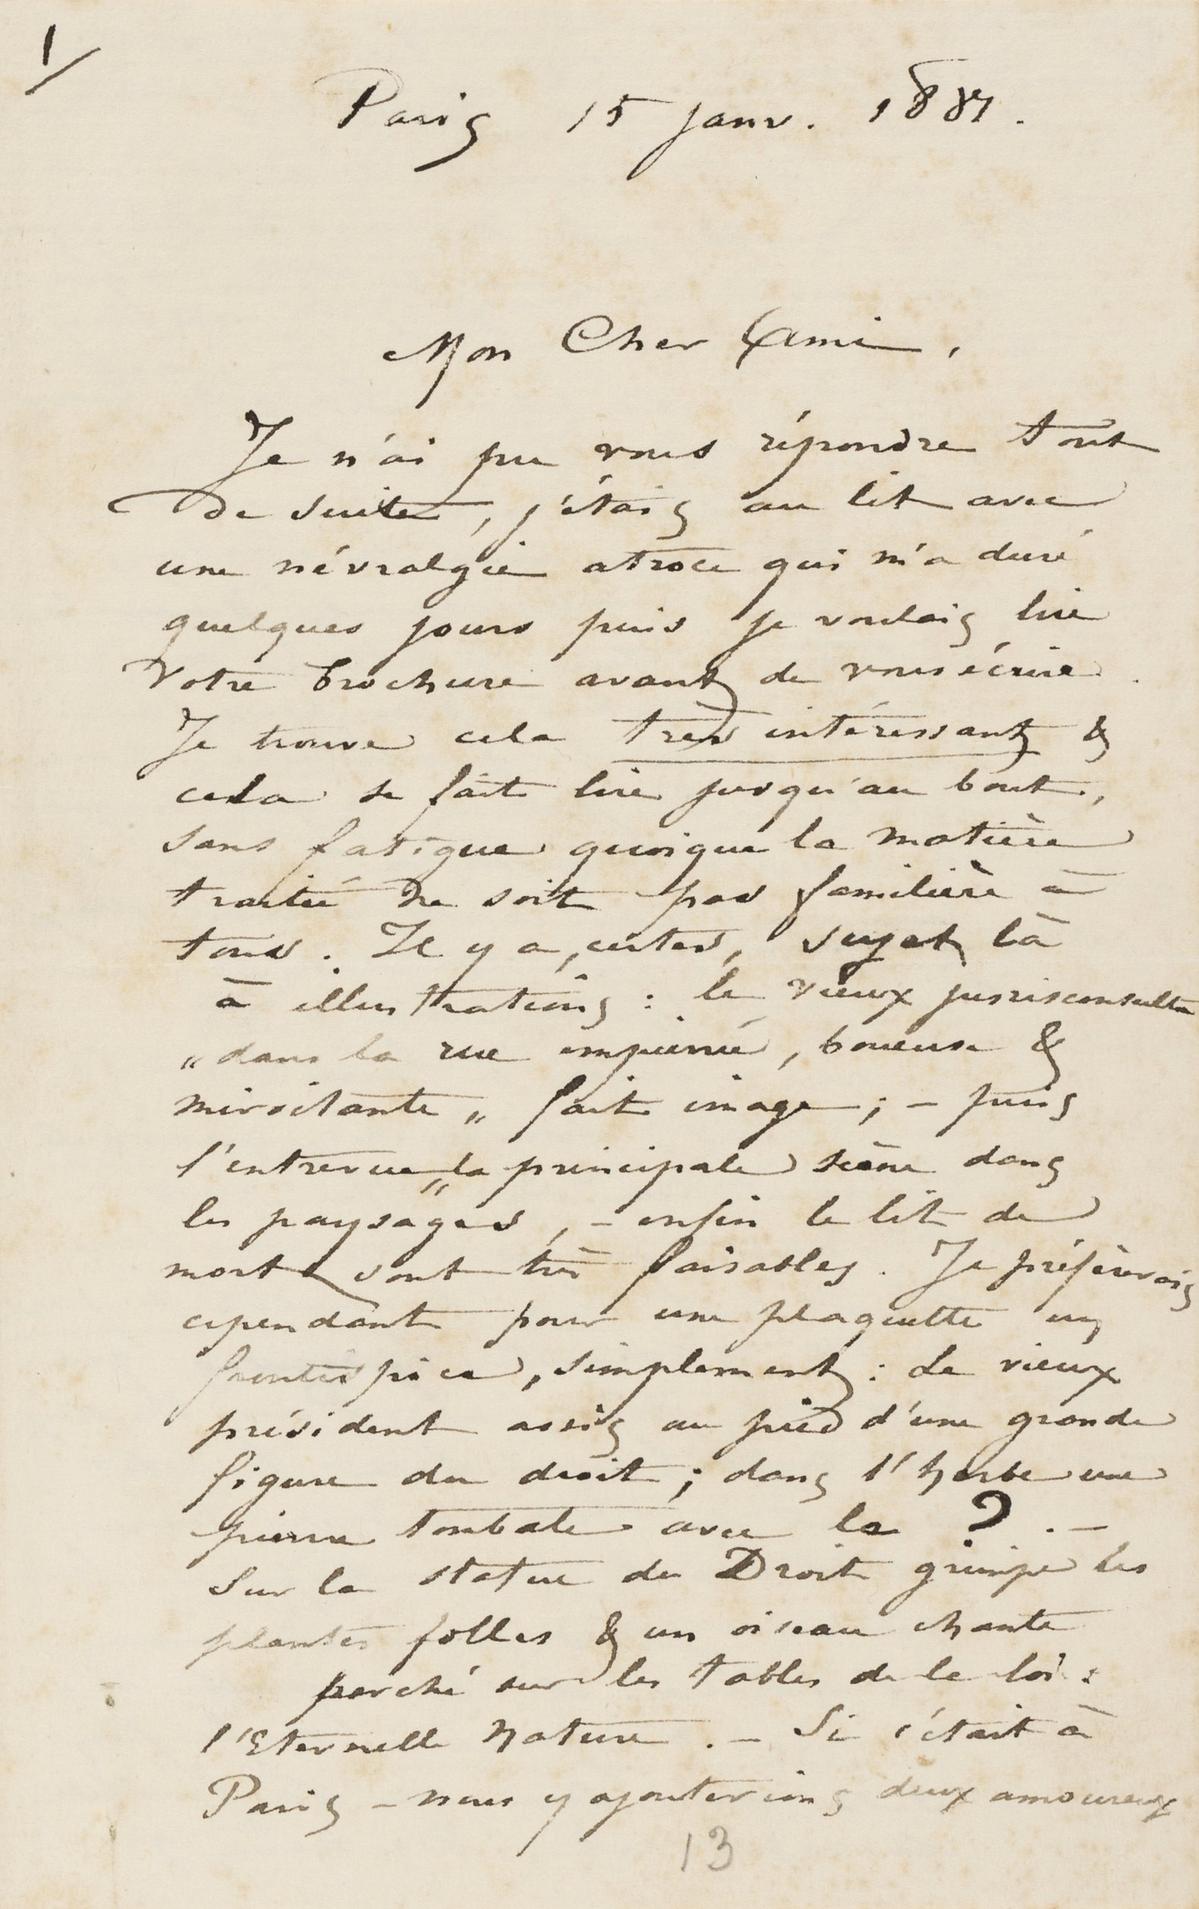 1/
Paris 15 janv. 188
Mon Cher Ami,
Je n'ai pu vous répondre tout
de suite, j'étais au lit avec
une névralgie atroce qui m'a duré
quelques jours puis je voulais lire
votre brochure avant de vous écrire.
Je trouve cela très intéressant &
cela se fait lire jusqu'au bout,
sans fatigue quoique la matière
traitée ne soit pas familière à
tous. Il y a, certes, sujet là
à illustrations : le vieux jurisconsulte
„ dans la rue , boueuse &
miroitante „ fait image ; – puis
l'entrevue „ la principale scène dans
les paysages, – enfin le lit de
mort sont très faisables. Je préférerais
cependant pour une plaquette un
frontispice, simplement : Le vieux
président assis au pied d'une grande
figure du droit ; dans l'herbe une
pierre tombale avec le ? . –
Sur la statue du Droit grimpe les
plantes folles & un oiseau chante
perché sur les tables de la loi :
l'Eternelle Nature. – Si c'était à
Paris – nous y ajouterions deux amoureux
13